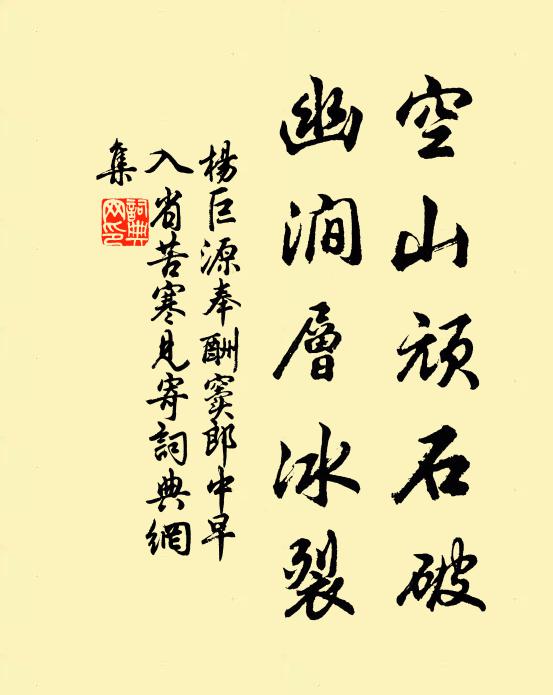 空山頑石破
幽澗層冰裂
楊巨源奉酬竇郎中早
入省苦寒見寄詞典網
集
詞典
网印